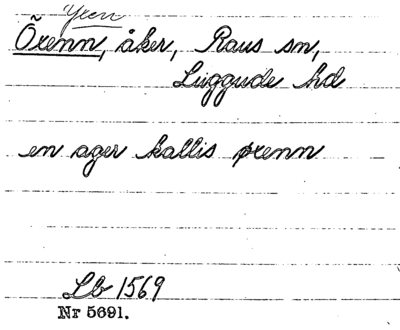 Yren
Õrenn, åker, Raus sn,
Luggude hd
en ager kallis ørenn
Lb 1569
Nr 5691.